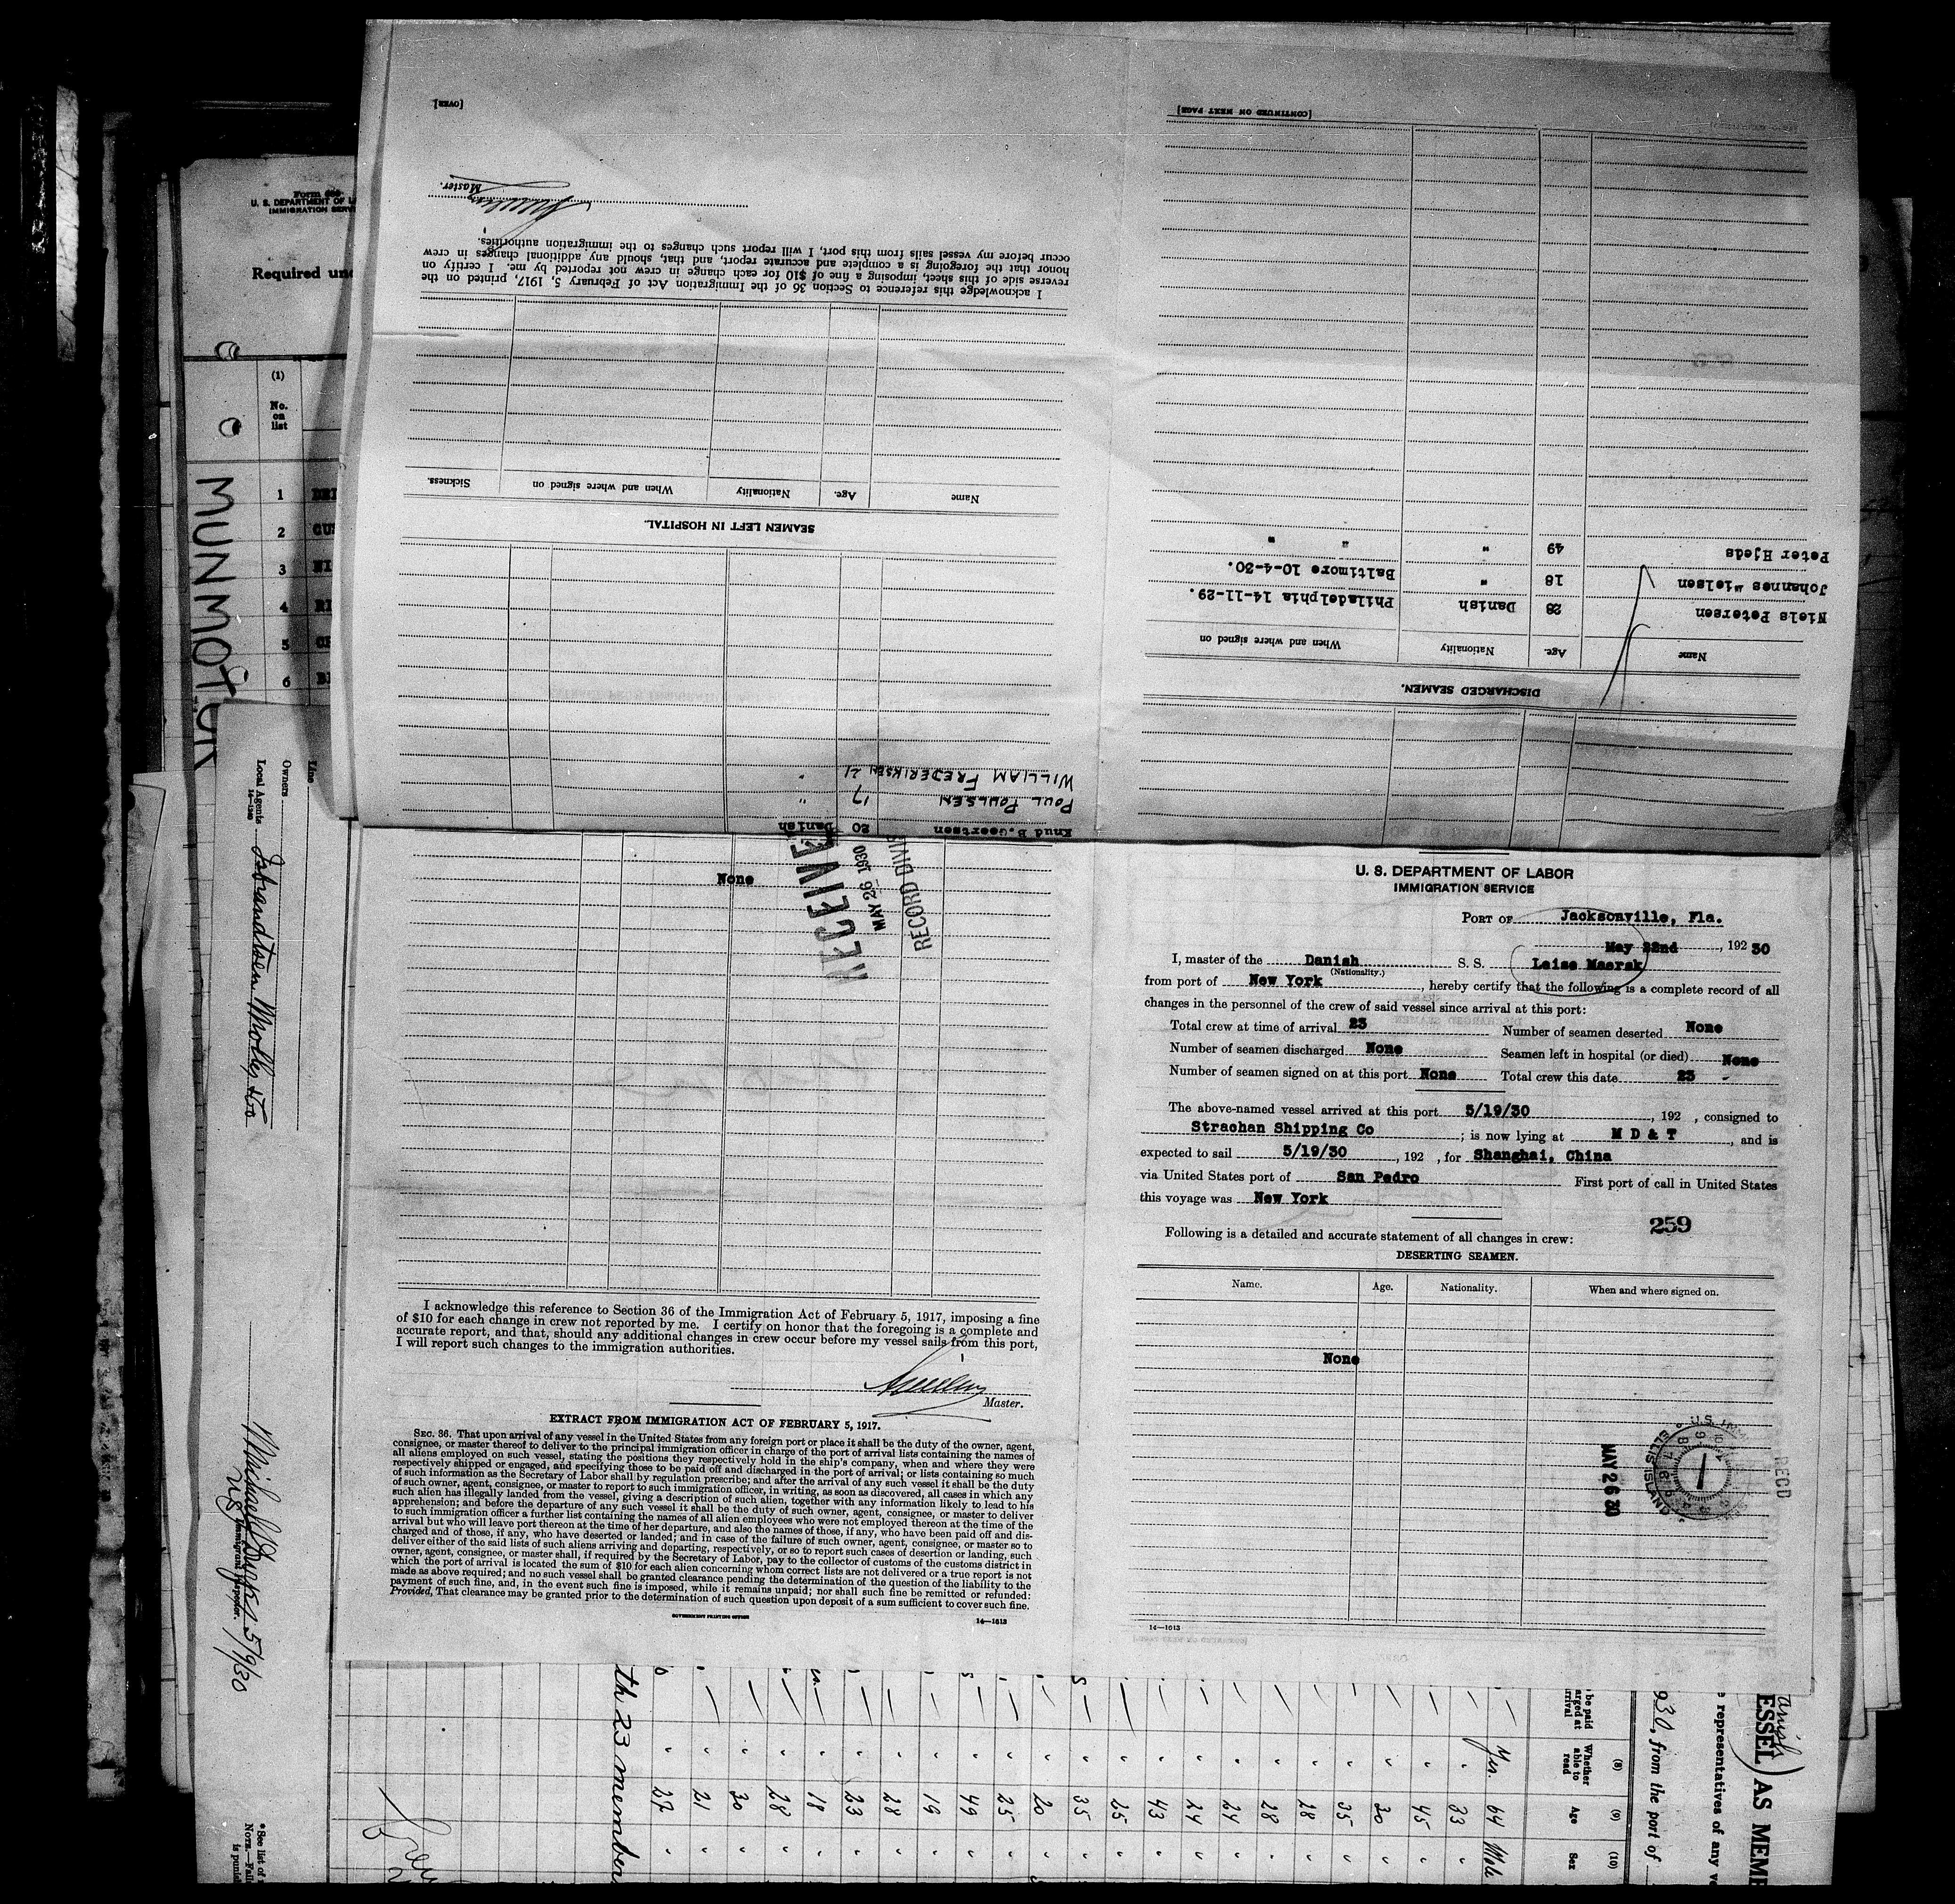 Form 680
U. S. DEPARTMENT OF
IMMIGRATION
Required
(1)
No.
on
list
1
2
3
4
5
6
MUNMOTOR
Line
Owners
Local Agents
14-1240
Immigrant Inspector.
5/9/30
[CONTINUED ON NEXT PAGE]
DISCHARGED SEAMEN.
Name
Age.
Nationality
When and where signed on
Niels Petersen 28 Danish Philadelphia 14-11-29.
Johannes Nielsen 18 " Baltimore 10-4-30.
Peter Hjeds 49 " " "
Knud B. Geertsen 20 Danish
POUL POULSEN 17 "
WILLIAM FREDERIKSEN 21 "
SEAMEN LEFT IN HOSPITAL.
Name
Age.
Nationality
When and where signed on
Sickness.
I acknowledge this reference to Section 36 of the Immigration Act of February 5, 1917, printed on the
reverse side of this sheet, imposing a fine of $10 for each change in crew not reported by me. I certify on
honor that the foregoing is a complete and accurate report, and that, should any additional changes in crew
occur before my vessel sails from this port, I will report such changes to the immigration authorities.
Master.
[OVER]
None
RECEIVED
MAY 26 1930
RECORD DIVI
I acknowledge this reference to Section 36 of the Immigration Act of February 5, 1917, imposing a fine
of $10 for each change in crew not reported by me. I certify on honor that the foregoing is a complete and
accurate report, and that, should any additional changes in crew occur before my vessel sails from this port,
I will report such changes to the immigration authorities.
Master.
EXTRACT FROM IMMIGRATION ACT OF FEBRUARY 5, 1917.
SEC. 36. That upon arrival of any vessel in the United States from any foreign port or place it shall be the duty of the owner, agent,
consignee, or master thereof to deliver to the principal immigration officer in charge of the port of arrival lists containing the names of
all aliens employed on such vessel, stating the positions they respectively hold in the ship's company, when and where they were
respectively shipped or engaged, and specifying those to be paid off and discharged in the port of arrival; or lists containing so much
of such information as the Secretary of Labor shall by regulation prescribe; and after the arrival of any such vessel it shall be the duty
of such owner, agent, consignee, or master to report to such immigration officer, in writing, as soon as discovered, all cases in which any
such alien has illegally landed from the vessel, giving a description of such alien, together with any information likely to lead to his
apprehension; and before the departure of any such vessel it shall be the duty of such owner, agent, consignee, or master to deliver
to such immigration officer a further list containing the names of all alien employees who were not employed thereon at the time of the
arrival but who will leave port thereon at the time of her departure, and also the names of those, if any, who have been paid off and dis-
charged and of those, if any, who have deserted or landed; and in case of the failure of such owner, agent, consignee, or master so to
deliver either of the said lists of such aliens arriving and departing, respectively, or so to report such cases of desertion or landing, such
owner, agent, consignee, or master shall, if required by the Secretary of Labor, pay to the collector of customs of the customs district in
which the port of arrival is located the sum of $10 for each alien concerning whom correct lists are not delivered or a true report is not
made as above required; and no such vessel shall be granted clearance pending the determination of the question of the liability to the
payment of such fine, and, in the event such fine is imposed, while it remains unpaid; nor shall such fine be remitted or refunded:
Provided, That clearance may be granted prior to the determination of such question upon deposit of a sum sufficient to cover such fine.
GOVERNMENT PRINTING OFFICE
14-1613
U. S. DEPARTMENT OF LABOR
IMMIGRATION SERVICE
PORT OF Jacksonville, Fla.
May 22nd, 192 30
I, master of the Danish S. S. Leise Maersk
(Nationality.)
from port of New York, hereby certify that the following is a complete record of all
changes in the personnel of the crew of said vessel since arrival at this port:
Total crew at time of arrival 23 Number of seamen deserted None
Number of seamen discharged None Seamen left in hospital (or died) None
Number of seamen signed on at this port None Total crew this date 23
The above-named vessel arrived at this port 5/19/30, 192 , consigned to
Strachan Shipping Co; is now lying at M D & T, and is
expected to sail 5/19/30, 192 , for Shanghai, China
via United States port of San Pedro First port of call in United States
this voyage was New York
259
Following is a detailed and accurate statement of all changes in crew:
DESERTING SEAMEN.
Name. Age. Nationality. When and where signed on.
None
U.S. IMM
ELLIS ISLAND
MAY 26 30
RECD
14-1613
ESSEL) AS MEME
representatives of any
930, from the port of
(8)
Whether
able to
read
(9)
Age
(10)
Sex
Yes. 64 Male
33
45
30
35
28
28
24
24
43
25
35
20
25
49
19
28
23
18
28
30
21
27
th 23 member
*See list of